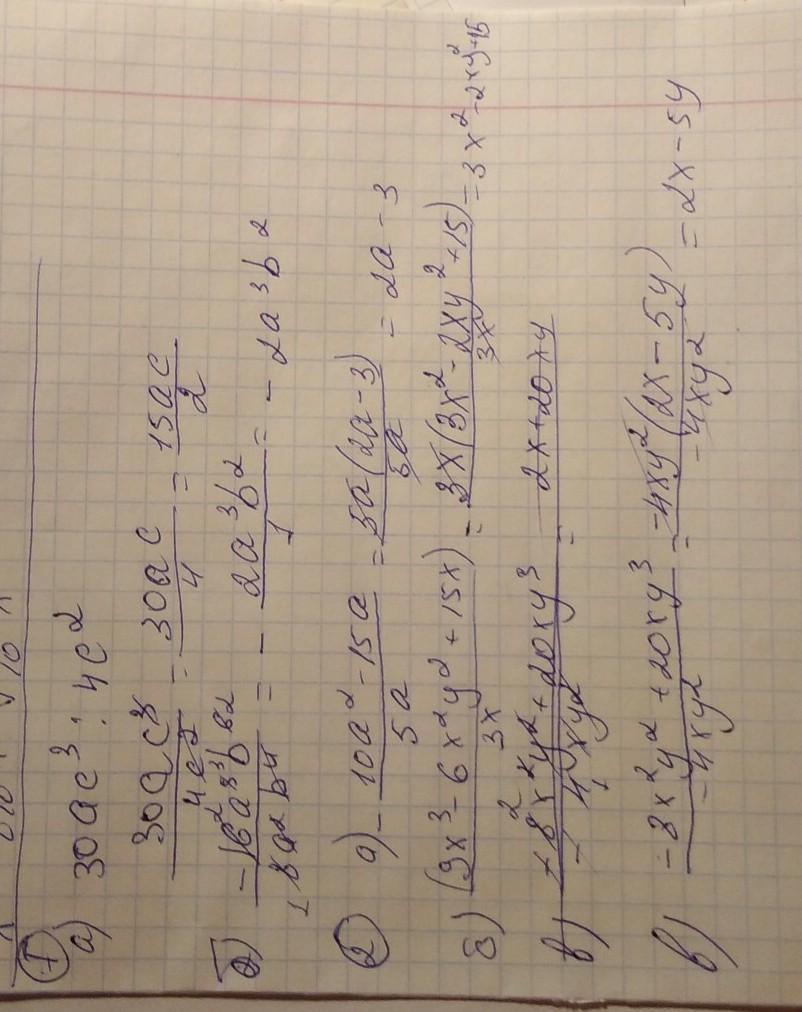 ①
а) 30ac³ : 4c²
30ac³/4c² = 30ac/4 = 15ac/2
б) -16a⁵b⁶/8a²b⁴ = - 2a³b²/1 = - 2a³b²
② а) - 10a² - 15a/5a = 5a(2a - 3)/5a = 2a - 3
б) (9x³ - 6x²y² + 15x)/3x = 3x(3x² - 2xy² + 15)/3x = 3x² - 2xy² + 15
в) -8x²y² + 20xy³/-4xy² = 2x + 20xy
в) -8x²y² + 20xy³/-4xy² = -4xy²(2x - 5y)/-4xy² = 2x - 5y